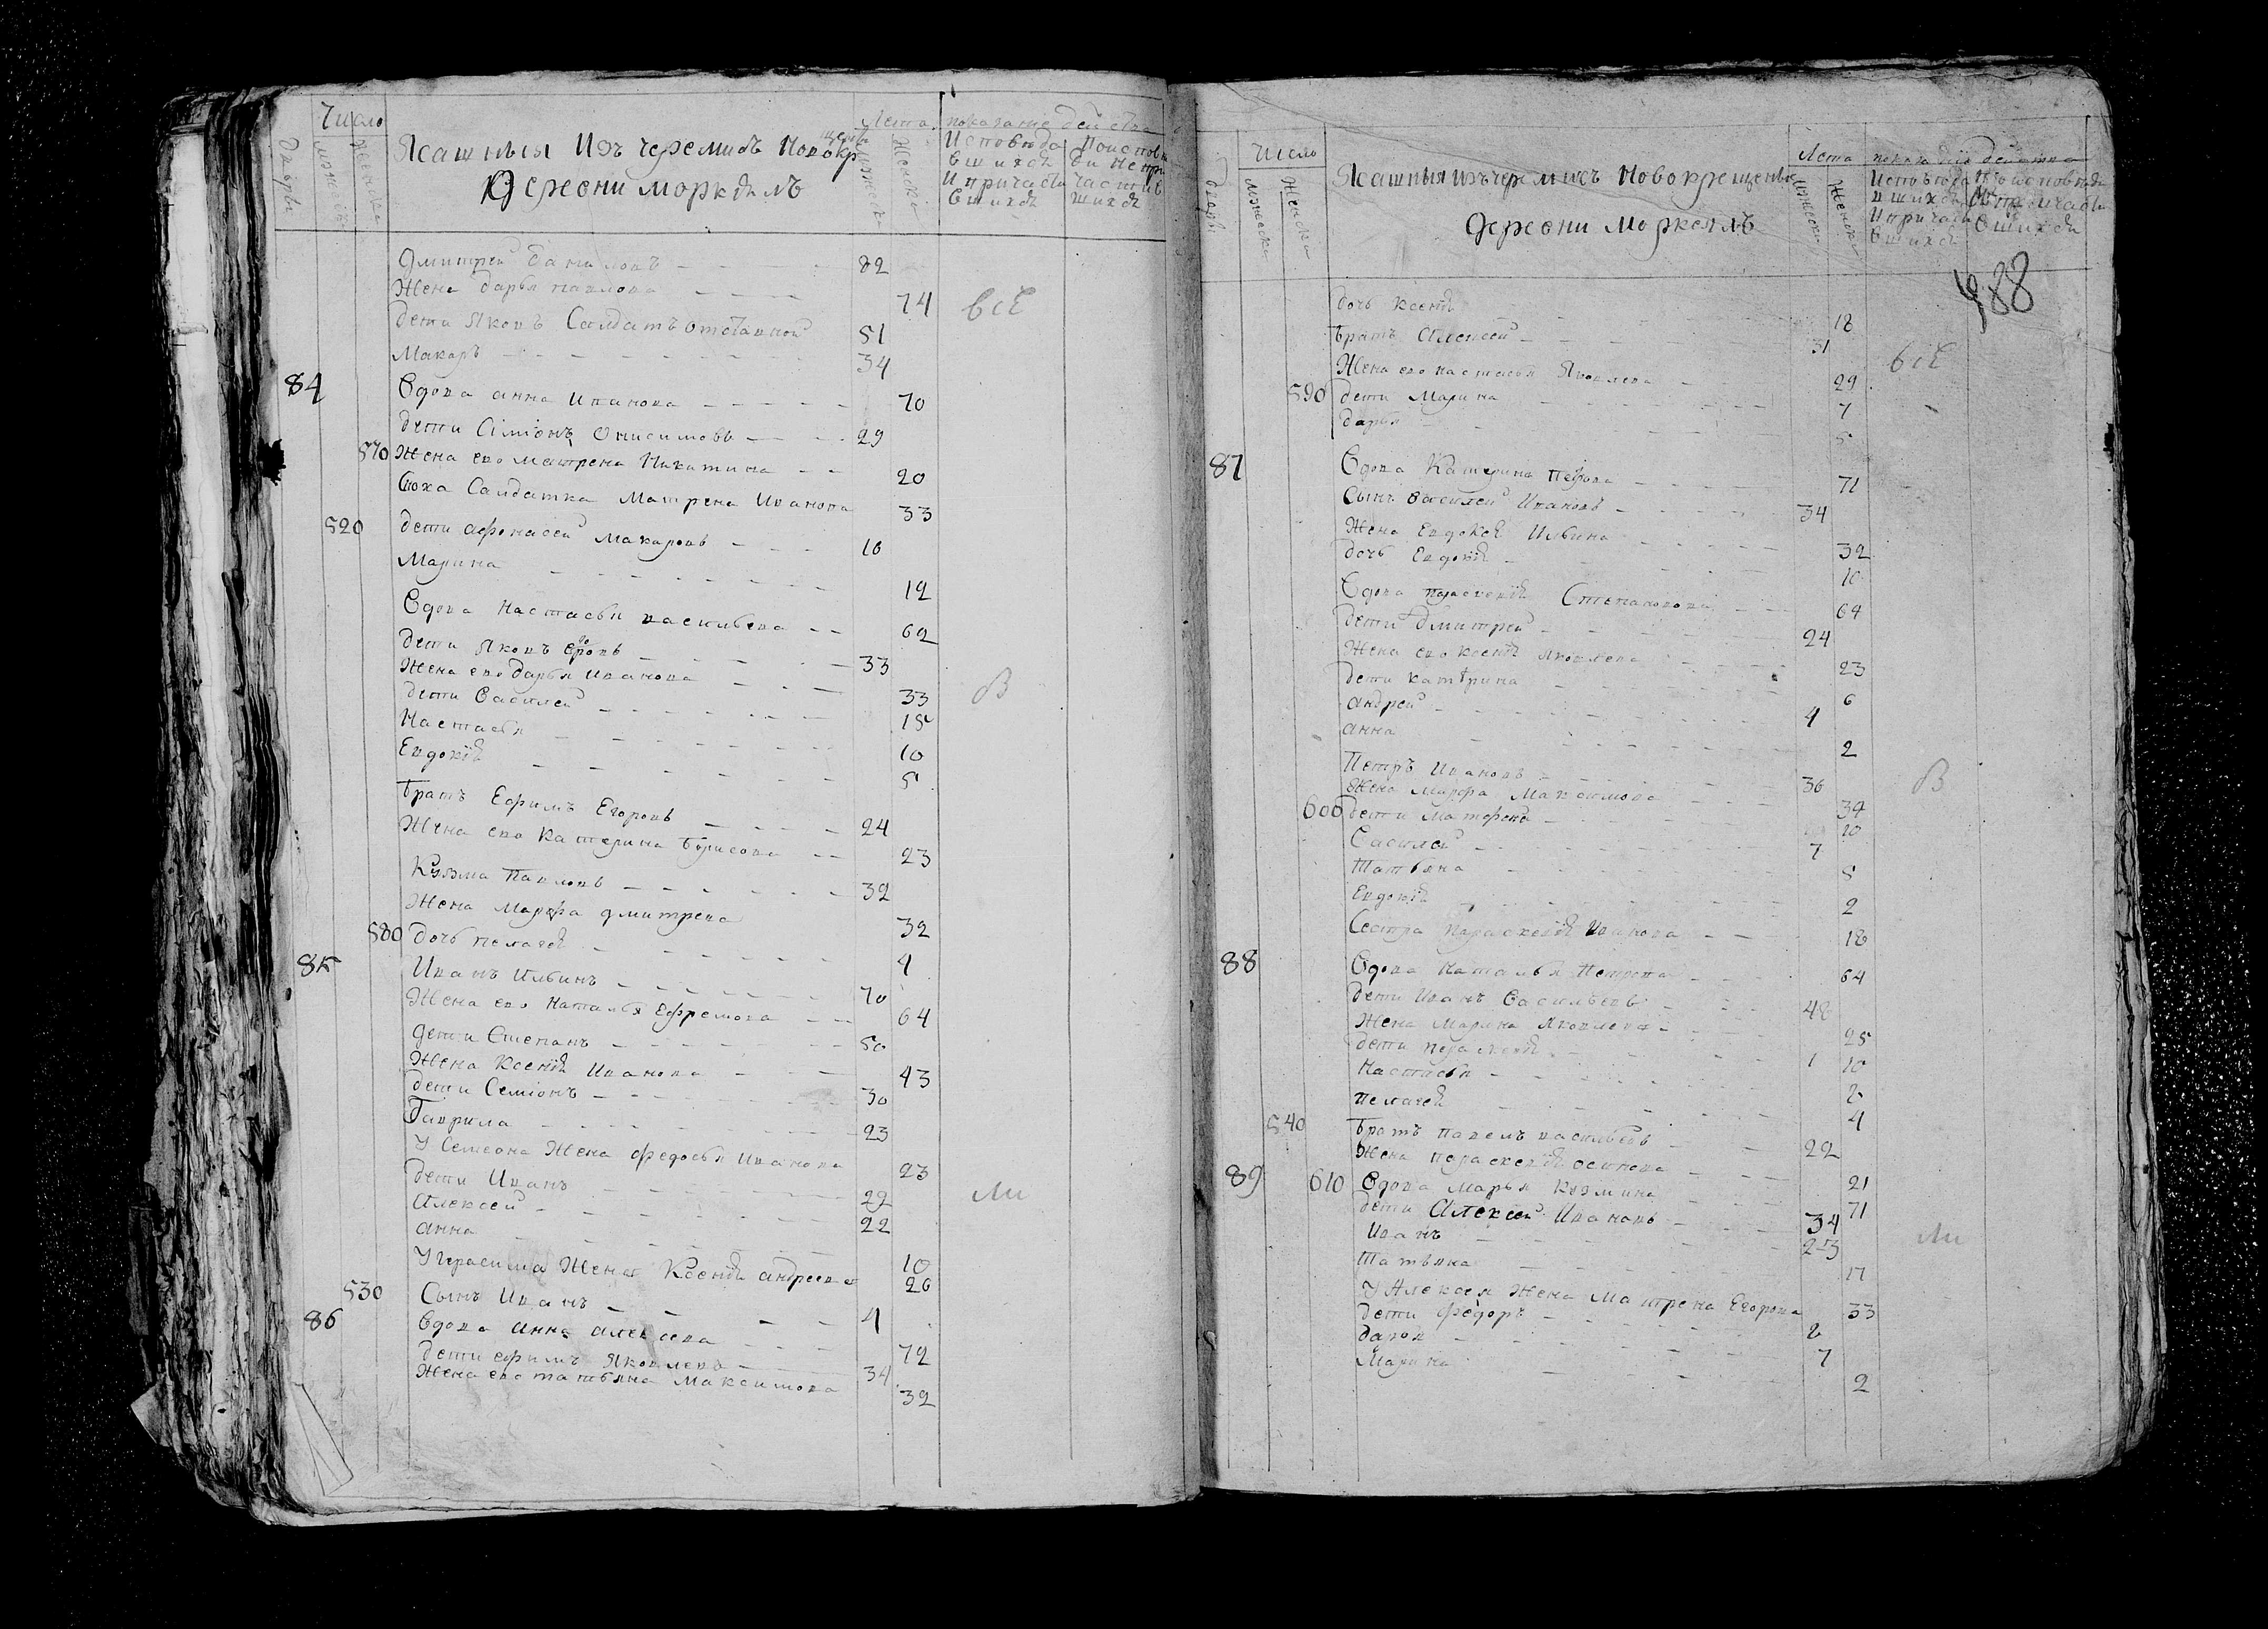 Число
Дворы
мужеска
Женска
Ясашныя Изъ черемисъ Новокрещены
деревни моркѣлъ
Лета
мужеска
Женска
показание действа
Исповѣдавшихся И причастившихся
Дмитрей даниловъ 82
Жена дарья павлова 74 всѣ
дети Яковъ Салдатъ отставной 51
Макаръ 34
84 Вдова анна Иванова 70
дети Симіонъ Онисимовъ 29
570 Жена ево матрена Никитина 20
Сноха Салдатка Матрена Иванова 33
520 дети афонасей Макаровъ 10
Марина 12
Вдова Настасья васильева 62
дети Яковъ Егоровъ 33
Жена ево дарья Иванова 33 В
дети Василей 15
Настасья 10
Евдокія 5
братъ Ефимъ Егоровъ 24
Жена ево Катерина борисова 23
Кузма Павловъ 32
Жена Марфа дмитрева 32
580 дочь пелагея 4
85 Иванъ Ильинъ 70
Жена ево Наталья Ефремова 64
дети Степанъ 50
Жена Ксенія Иванова 43
дети Семіонъ 30
Гаврила 23
У Семеона Жена Федосья Иванова 23
дети Иванъ 29 Ли
Алексей 22
анна 10
У герасима Жена Ксенія андреева 26
530 Сынъ Иванъ 4
86 Вдова анна алексеева 72
дети ефимъ Яковлевъ 34
Жена ево татьяна Максимова 32
Число
дворы
мужеска
Женска
Ясашныя изъ черемисъ Новокрещены
деревни Моркелъ
Лета показание действа
мужеска
Женска
488
дочь ксенія 18
братъ Алексей 31 всѣ
Жена ево настасья Яковлева 29
590 дети Марина 7
дарья 5
87 Вдова Катерина Петрова 71
Сынъ василей Ивановъ 34
Жена Евдокея Ильина 32
дочь Евдокія 10
Вдова параскевія Степановна 64
дети дмитрей 24
Жена ево ксенія яковлева 23
дети катѣрина 6
андрей 4
анна 2
Петръ Ивановъ 36 В
Жена Марфа Максимова 34
600 дети Матрена 10
Василей 7
Татьяна 5
Евдокія 2
Сестра параскевія Иванова 18
88 Вдова Наталья Петрова 64
дети Иванъ Васильевъ 48
Жена Марина Яковлева 25
дети параскевія 1 10
Настасья 2
пелагея 4
540 братъ павелъ васильевъ 22
Жена параскевія осипова 21
89 610 Вдова Марья Козмина 71
дети Алексей Ивановъ 34
Иванъ 23 Ли
Татьяна 17
У Алексея Жена Матрена Егорова 33
дети Федоръ 2
7
Марина 2